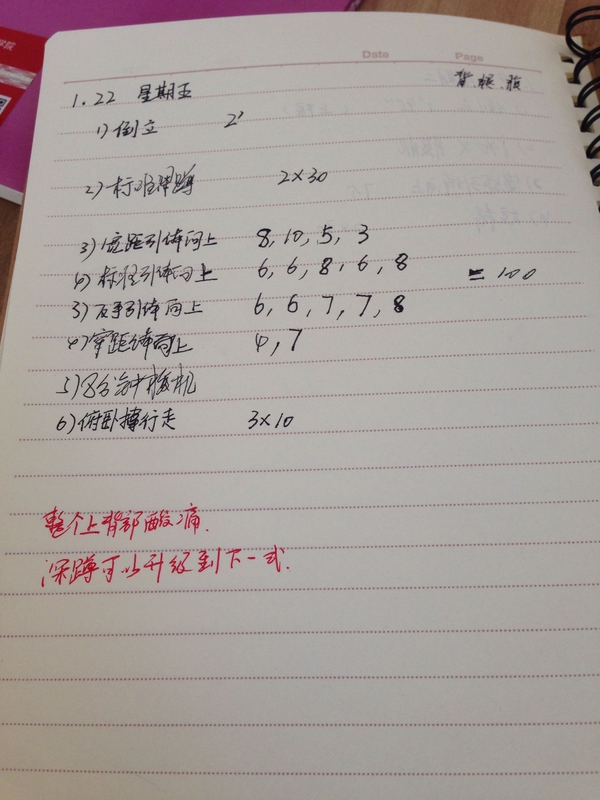 Date Page
背、腿、腹
1.22 星期五
1) 倒立 2'
2) 标准深蹲 2×30
3) 宽距引体向上 8, 10, 5, 3
4) 标准引体向上 6, 6, 8, 6, 8 = 100
3) 反手引体向上 6, 6, 7, 7, 8
4) 窄距引体向上 4, 7
5) 8分钟腹肌
6) 俯卧撑行走 3×10
整个上背部酸痛.
深蹲可以升级到下一式.